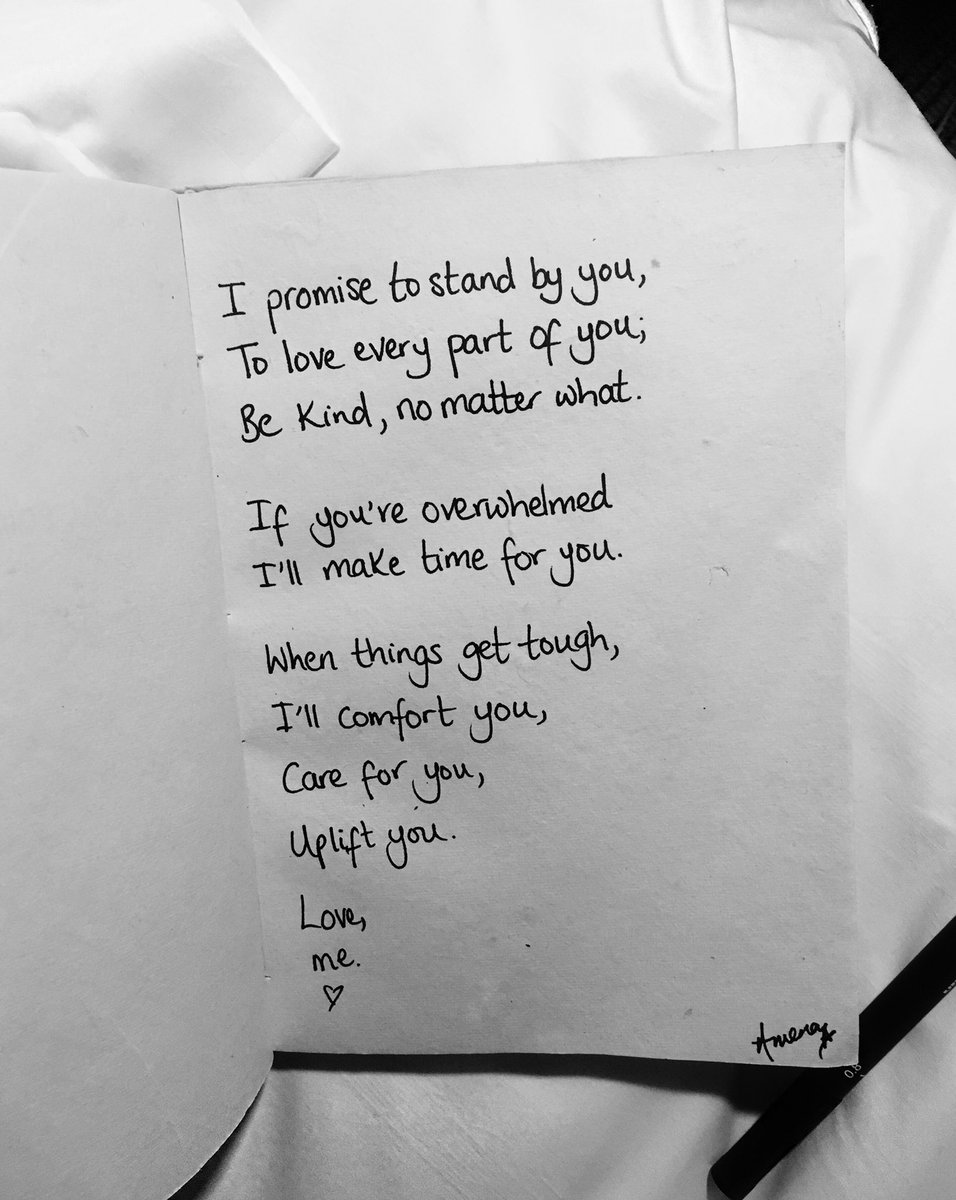 I promise to stand by you,
To love every part of you;
Be kind, no matter what.
If you're overwhelmed
I'll make time for you.
When things get tough,
I'll comfort you,
Care for you,
Uplift you.
Love,
me.
Amena
0.8